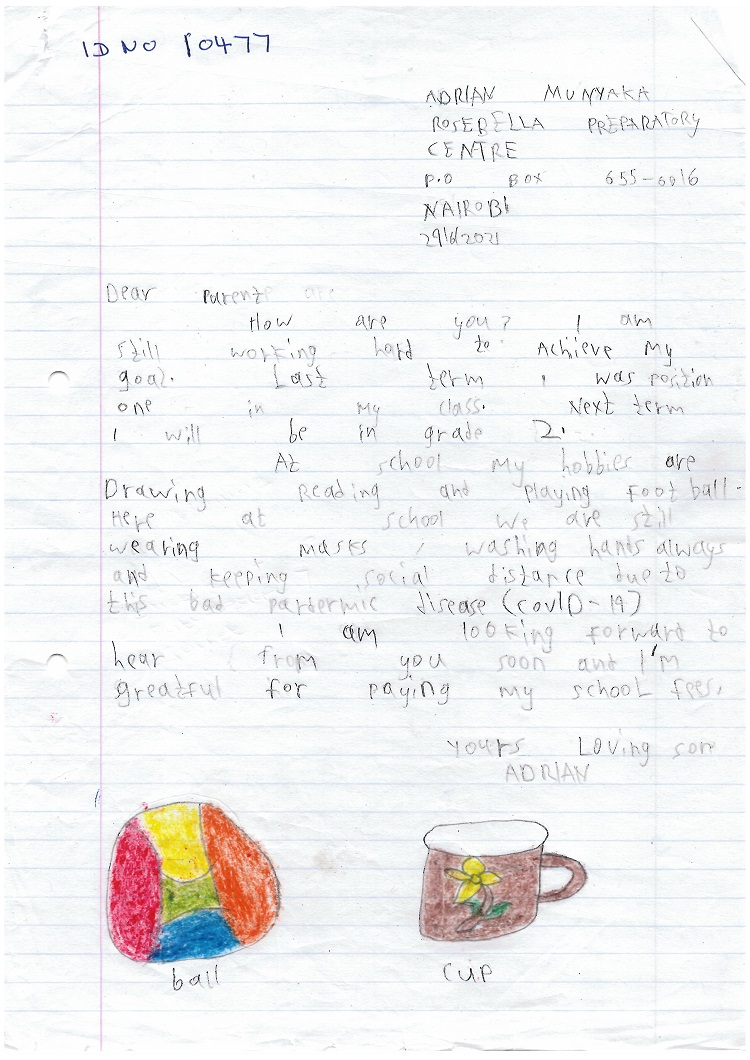 ID NO 10477
ADRIAN MUNYAKA
ROSEBELLA PREPARATORY
CENTRE
P.O BOX 655-6016
NAIROBI
29/6/2021
Dear Parents are
How are you? I am
still working hard to Achieve My
goal. Last term I was position
one in My class. Next term
I will be in grade 2.
At school My hobbies are
Drawing Reading and Playing Foot ball.
Here at school we are still
wearing masks / washing hands always
and keeping social distance due to
this bad pardermic disease (covID-19)
I am looking forward to
hear from you soon and I'm
greatful for paying my school fees.
Yours Loving son
ADRIAN
ball cup